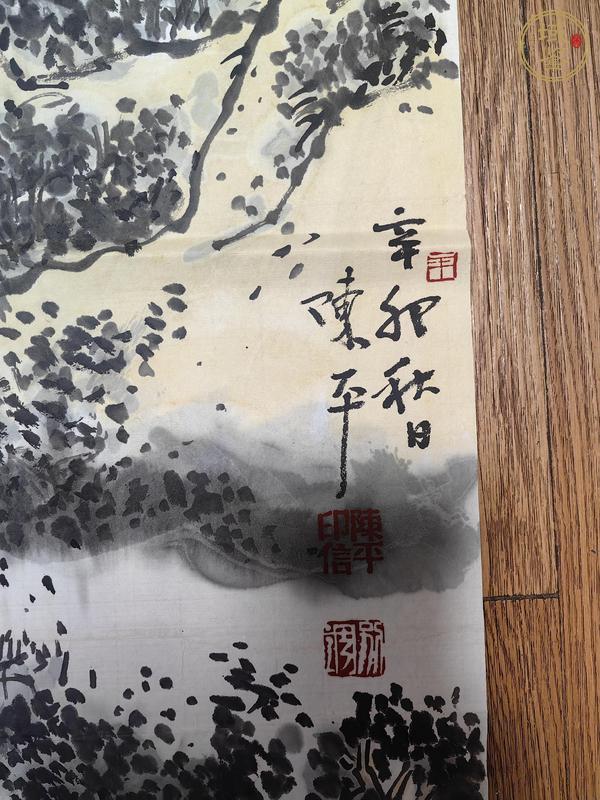 辛卯秋日
陳平
陳平
印信